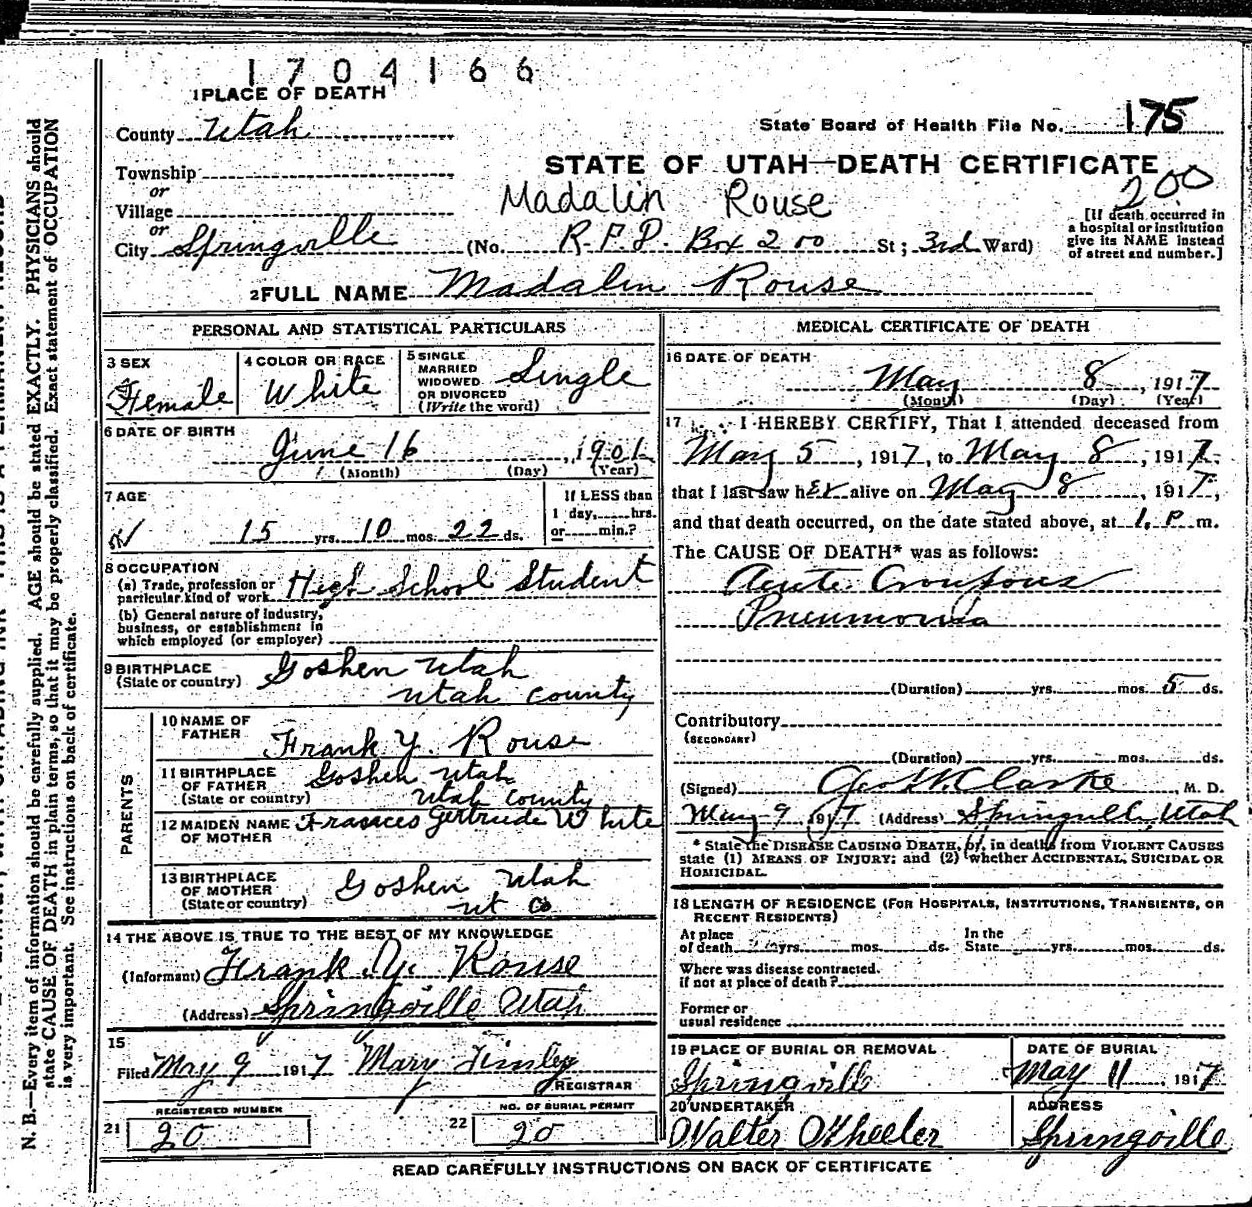 1704166
1 PLACE OF DEATH
County Utah
State Board of Health File No. 175
STATE OF UTAH—DEATH CERTIFICATE
Township
or
Village
Madalin Rouse
200
[If death occurred in
a hospital or institution
give its NAME instead
of street and number.]
or
City Springville (No. R.F.D. Box 200 St; 3rd Ward)
2 FULL NAME Madalin Rouse
PERSONAL AND STATISTICAL PARTICULARS
3 SEX
Female
4 COLOR OR RACE
White
5 SINGLE
MARRIED
WIDOWED
OR DIVORCED
(Write the word)
Single
6 DATE OF BIRTH
June 16, 1901
(Month) (Day) (Year)
7 AGE
15 yrs. 10 mos. 22 ds.
If LESS than
1 day, hrs.
or min.?
8 OCCUPATION
(a) Trade, profession or
particular kind of work High School Student
(b) General nature of industry,
business, or establishment in
which employed (or employer)
9 BIRTHPLACE
(State or country)
Goshen Utah
Utah County
PARENTS
10 NAME OF
FATHER
Frank Y. Rouse
11 BIRTHPLACE
OF FATHER
(State or country)
Goshen Utah
Utah County
12 MAIDEN NAME
OF MOTHER
Frances Gertrude White
13 BIRTHPLACE
OF MOTHER
(State or country)
Goshen Utah
Ut Co
14 THE ABOVE IS TRUE TO THE BEST OF MY KNOWLEDGE
(Informant) Frank Y. Rouse
(Address) Springville Utah
15
Filed May 9 1917 Mary Finley
REGISTRAR
REGISTERED NUMBER
21 20
NO. OF BURIAL PERMIT
22 20
MEDICAL CERTIFICATE OF DEATH
16 DATE OF DEATH
May 8, 1917
(Month) (Day) (Year)
17 I HEREBY CERTIFY, That I attended deceased from
May 5, 1917, to May 8, 1917,
that I last saw her alive on May 8, 1917,
and that death occurred, on the date stated above, at 1. P. m.
The CAUSE OF DEATH* was as follows:
Acute Croupous
Pneumonia
(Duration) yrs. mos. 5 ds.
Contributory
(SECONDARY)
(Duration) yrs. mos. ds.
(Signed) Geo W. Clarke M. D.
May 9 1917 (Address) Springville, Utah
* State the DISEASE CAUSING DEATH, or, in deaths from VIOLENT CAUSES
state (1) MEANS OF INJURY; and (2) whether ACCIDENTAL, SUICIDAL OR
HOMICIDAL.
18 LENGTH OF RESIDENCE (FOR HOSPITALS, INSTITUTIONS, TRANSIENTS, OR
RECENT RESIDENTS)
At place
of death yrs. mos. ds.
In the
State yrs. mos. ds.
Where was disease contracted.
if not at place of death?
Former or
usual residence
19 PLACE OF BURIAL OR REMOVAL
Springville
DATE OF BURIAL
May 11, 1917
20 UNDERTAKER
Walter Wheeler
ADDRESS
Springville
READ CAREFULLY INSTRUCTIONS ON BACK OF CERTIFICATE
N. B.—Every item of information should be carefully supplied. AGE should be stated EXACTLY. PHYSICIANS should
state CAUSE OF DEATH in plain terms, so that it may be properly classified. Exact statement of OCCUPATION
is very important. See instructions on back of certificate.